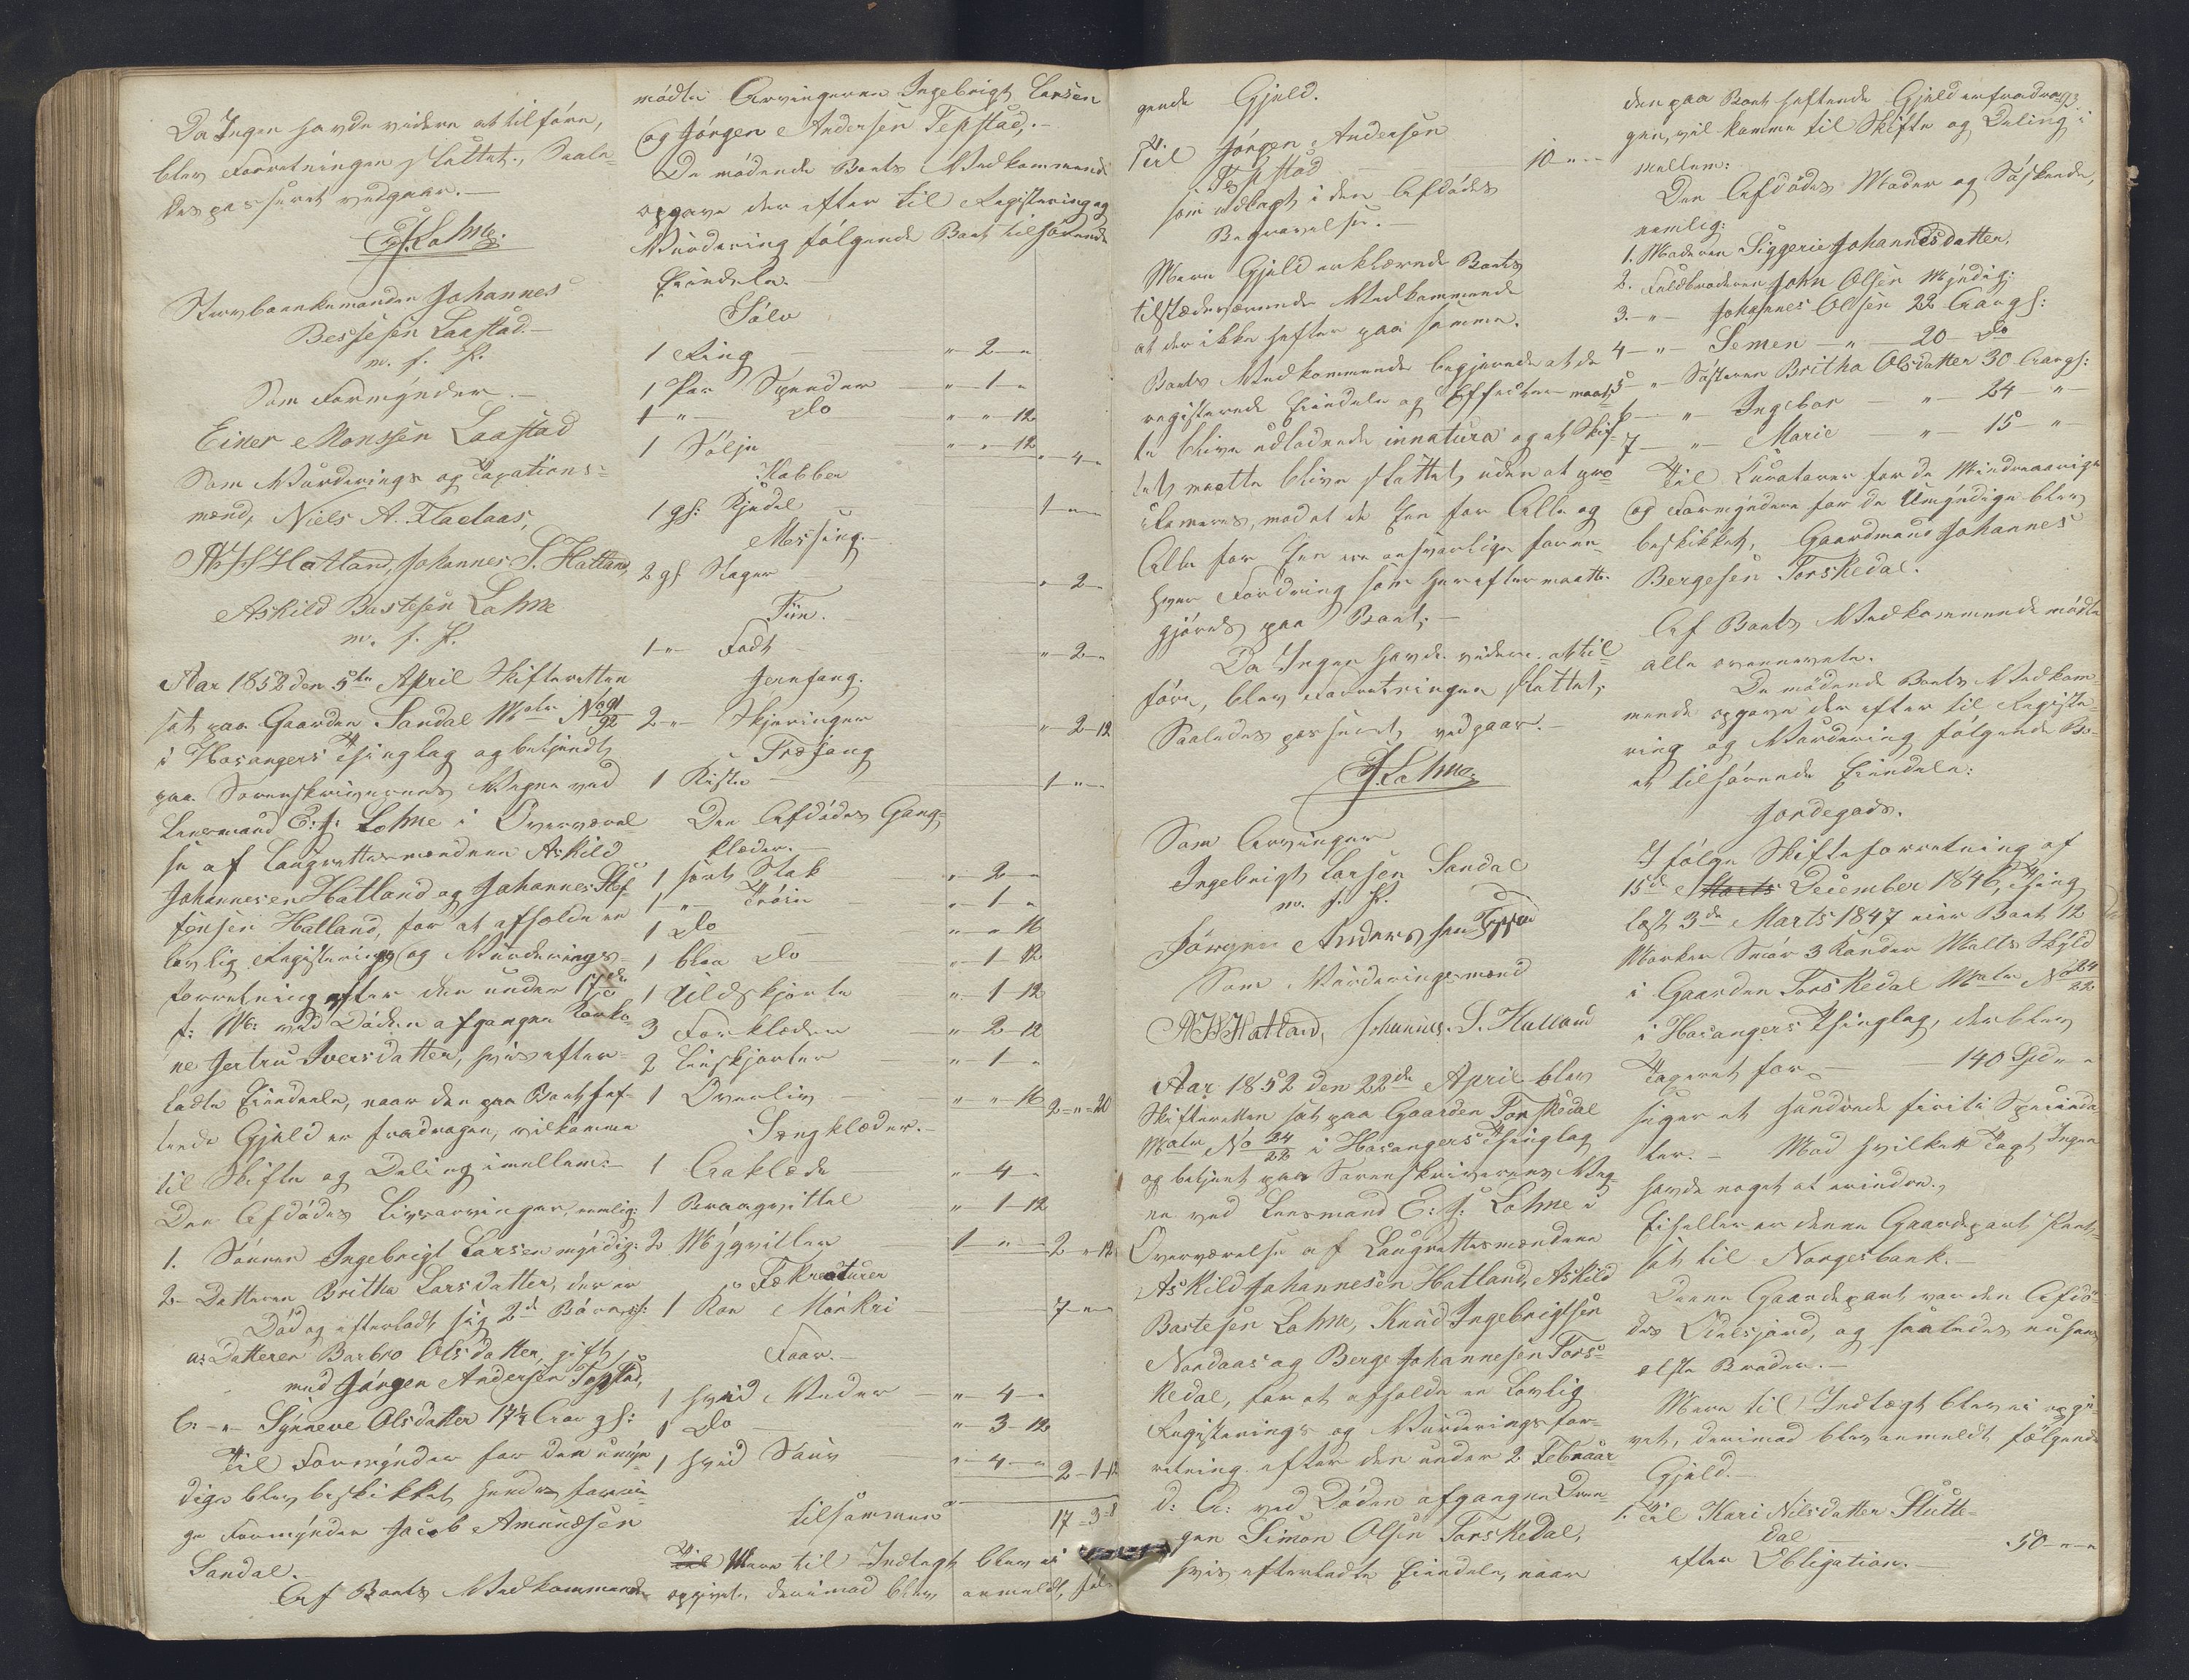 Da Ingen havde videre at tilføre,
blev Forretningen sluttet. Saale-
des passeret vedgaar.-
E J Lohne.
Stervboenkemanden Johannes
Bessesen Laastad.-
m. f. P.
Som Formynder.-
Einer Monssen Laastad
Som Vurderings og Taxations-
mænd, Niels A.
A J Hatland, Johannes S. Hatland,
Askild Bastesen Lohne
m. f. P.
Aar 1852 den 5te April Skifteretten
sat paa Gaarden Sandal Matr No 91/92
i Hosangers Thinglag og betjendt
paa Sorenskriverens Vegne ved
Lensmand E: J: Lohne i Overværel
se af Laugrettesmændene Askild
Johannesen Hatland og Johannes Stef
fensen Hatland, for at afholde en
lovlig Registerings og Vurderings-
forretning efter den under 17de
f: M: ved Døden afgangen Kaarko-
ne Jertru Iversdatter, hvis efter-
ladte Eiendeele, naar den paa Boet hef-
tende Gjeld er fradragen, vil komme
til Skifte og Deling imellem:-
Den Afdødes Livsarvinger, nemlig:
1. Sønnen Ingebrigt Larsen myndig:
2- Datteren Britha Larsdatter, der er
Død og efterladt sig 2de Børn:
a: Datteren Barbro Olsdatter, gift
med Jørgen Andersen Tepstad,
b: -"- Synneve Olsdatter 17½ Aar gl:
Til Formynder for den umyn
dige blev beskikket hendes forri-
ge Formynder Jacob Amundsen
Sandal.-
Af Boets Vedkommende
mødte Arvingerne Ingebrigt Larsen
og Jørgen Andersen Tepstad.-
De mødende Boets Vedkommende
opgave der efter til Registering og
Vurdering følgende Boet tilhørende
Eiendele.
Sølv
1 Ring " - 2 - "
1 Par Spender " - 1 - "
1 - " - Do " - " - 12
1 Sølje " - " - 12 " - 4 - "
Kobber
1 gl: Kjedel 1 - " - "
Messing.-
2 gl Stager " - 2 - "
Tin.
1 -"- Fadt " - 2 - "
Jernfang.
2 -"- Skjeringer " - 2 - 12
Træfang
1 Kiste 1 - " - "
Den Afdødes Gang-
klæder.-
1 sort Stak " - 2 - "
1 -"- Trøie " - 1 - "
1 Do " - " - 16
1 blaa Do " - 1 - 12
1 Uldskjorte " - 1 - 12
3 Forklæder " - 2 - 12
2 Linskjorter " - 1 - "
1 Overliv " - " - 16 2 - " - 20
Sengklæder.-
1 Aaklæde " - 4 - "
1 " - 1 - 12
2 1 - " - " 2 - " - 12
Fækreaturer
1 Koe Mørkri 7 - " - "
Faar.-
1 hvid Veder " - 4 - "
1 Do " - 3 - 12
1 hvid Sauv " - 4 - " 2 - 1 - 12
tilsammen 17 - 3 - 8
Mere til Indtægt blev ei
opgivet, derimod blev anmeldt, føl-
gende Gjeld.
Til Jørgen Andersen
Tepstad 10 - " -
som udlagt i den Afdødes
Begravelse.-
Mere Gjeld erklærede Boets
tilstædeværende Vedkommende
at der ikke hefter paa samme.
Boets Vedkommende begjerede at de
registerede Eiendele og Effecter maat-
te blive udlodnede innatura og at Skif-
tet maatte blive sluttet, uden at pro
clameres, mod at de Een for Alle og
Alle for Een ere ansvarlige for en-
hver Fordring som herefter maatte
gjøres paa Boet;-
Da Ingen havde videre at til-
føre, blev Forretningen sluttet,
Saaledes passeret, vedgaar.-
E J Lohne.
Som Arvinger
Ingebrigt Larsen Sandal
m. f. P.
Jørgen Andersen
Som Vurderingsmænd
A J Hatland, Johannes. S. Hatland
Aar 1852 den 22de April blev
Skifteretten sat paa Gaarden Torskedal
Matr No 24/22 i Hosangers Thinglag
og betjent paa Sorenskriverens Veg-
ne ved Lensmand E: J: Lohne i
Overværelse af Laugrettesmændene
Askild Johannesen Hatland, Askild
Bastesen Lohne, Knud Ingebrigtsen
Nordaas og Berge Johannesen Tors-
kedal, for at afholde en Lovlig
Registerings og Vurderings for-
retning efter den under 2 Februar
d: A: ved Døden afgangen Dren-
gen Simon Olsen Torskedal,
hvis efterladte Eiendele, naar
93.
den paa Boet heftende Gjeld er fradra-
gen, vil komme til Skifte og Deling i
mellem:
Den Afdødes Moder og Søskende,
nemlig:
1. Moderen Siggerie Johannesdatter,
2. Fuldbroderen John Olsen Myndig:
3. -"- Johannes Olsen 22 Aar gl:
4 - "- Semen -"- 20 - Do
5 - " Søsteren Britha Olsdatter 30 Aar gl:
6 - " Ingebor - " - 24 - " -
7 - " - Marie - " - 15 - " -
Til Curatorer for de Mindreaarige
og Formyndere for de Umyndige blev
beskikket, Gaardmand Johannes
Bergesen Torskedal.
Af Boets Vedkommende mødte
alle ovennevnte.
De mødende Boets Vedkom-
mende opgave der efter til Registe-
ring og Vurdering følgende Bo-
et tilhørende Eiendele:
Jordegods.
I følge Skifteforretning af
15de Marts December 1846, Thing
læst 3de Marts 1847 eier Boet 12
Marker Smør 3 Kander Malts Skyld
i Gaarden Torskedal Matr No 24/22
i Hosangers Thinglag, der blev
Taxeret for - 140 Spd - "
siger et hundrede firiti Speciada
ler.- Mod hvilken Taxt Ingen
havde noget at erindre.,
Eiheller er denne Gaardepart Pant-
sat til Norgesbank.-
Denne Gaardepart var den Afdø-
des Odelsjord, og saaledes nu hans
elste Broder.-
Mere til Indtægt blev ei opgi-
vet, derimod blev anmeldt følgende
Gjeld.-
1. Til Kari Nilsdatter Slutte-
dal
efter Obligation.- 50 - " - "